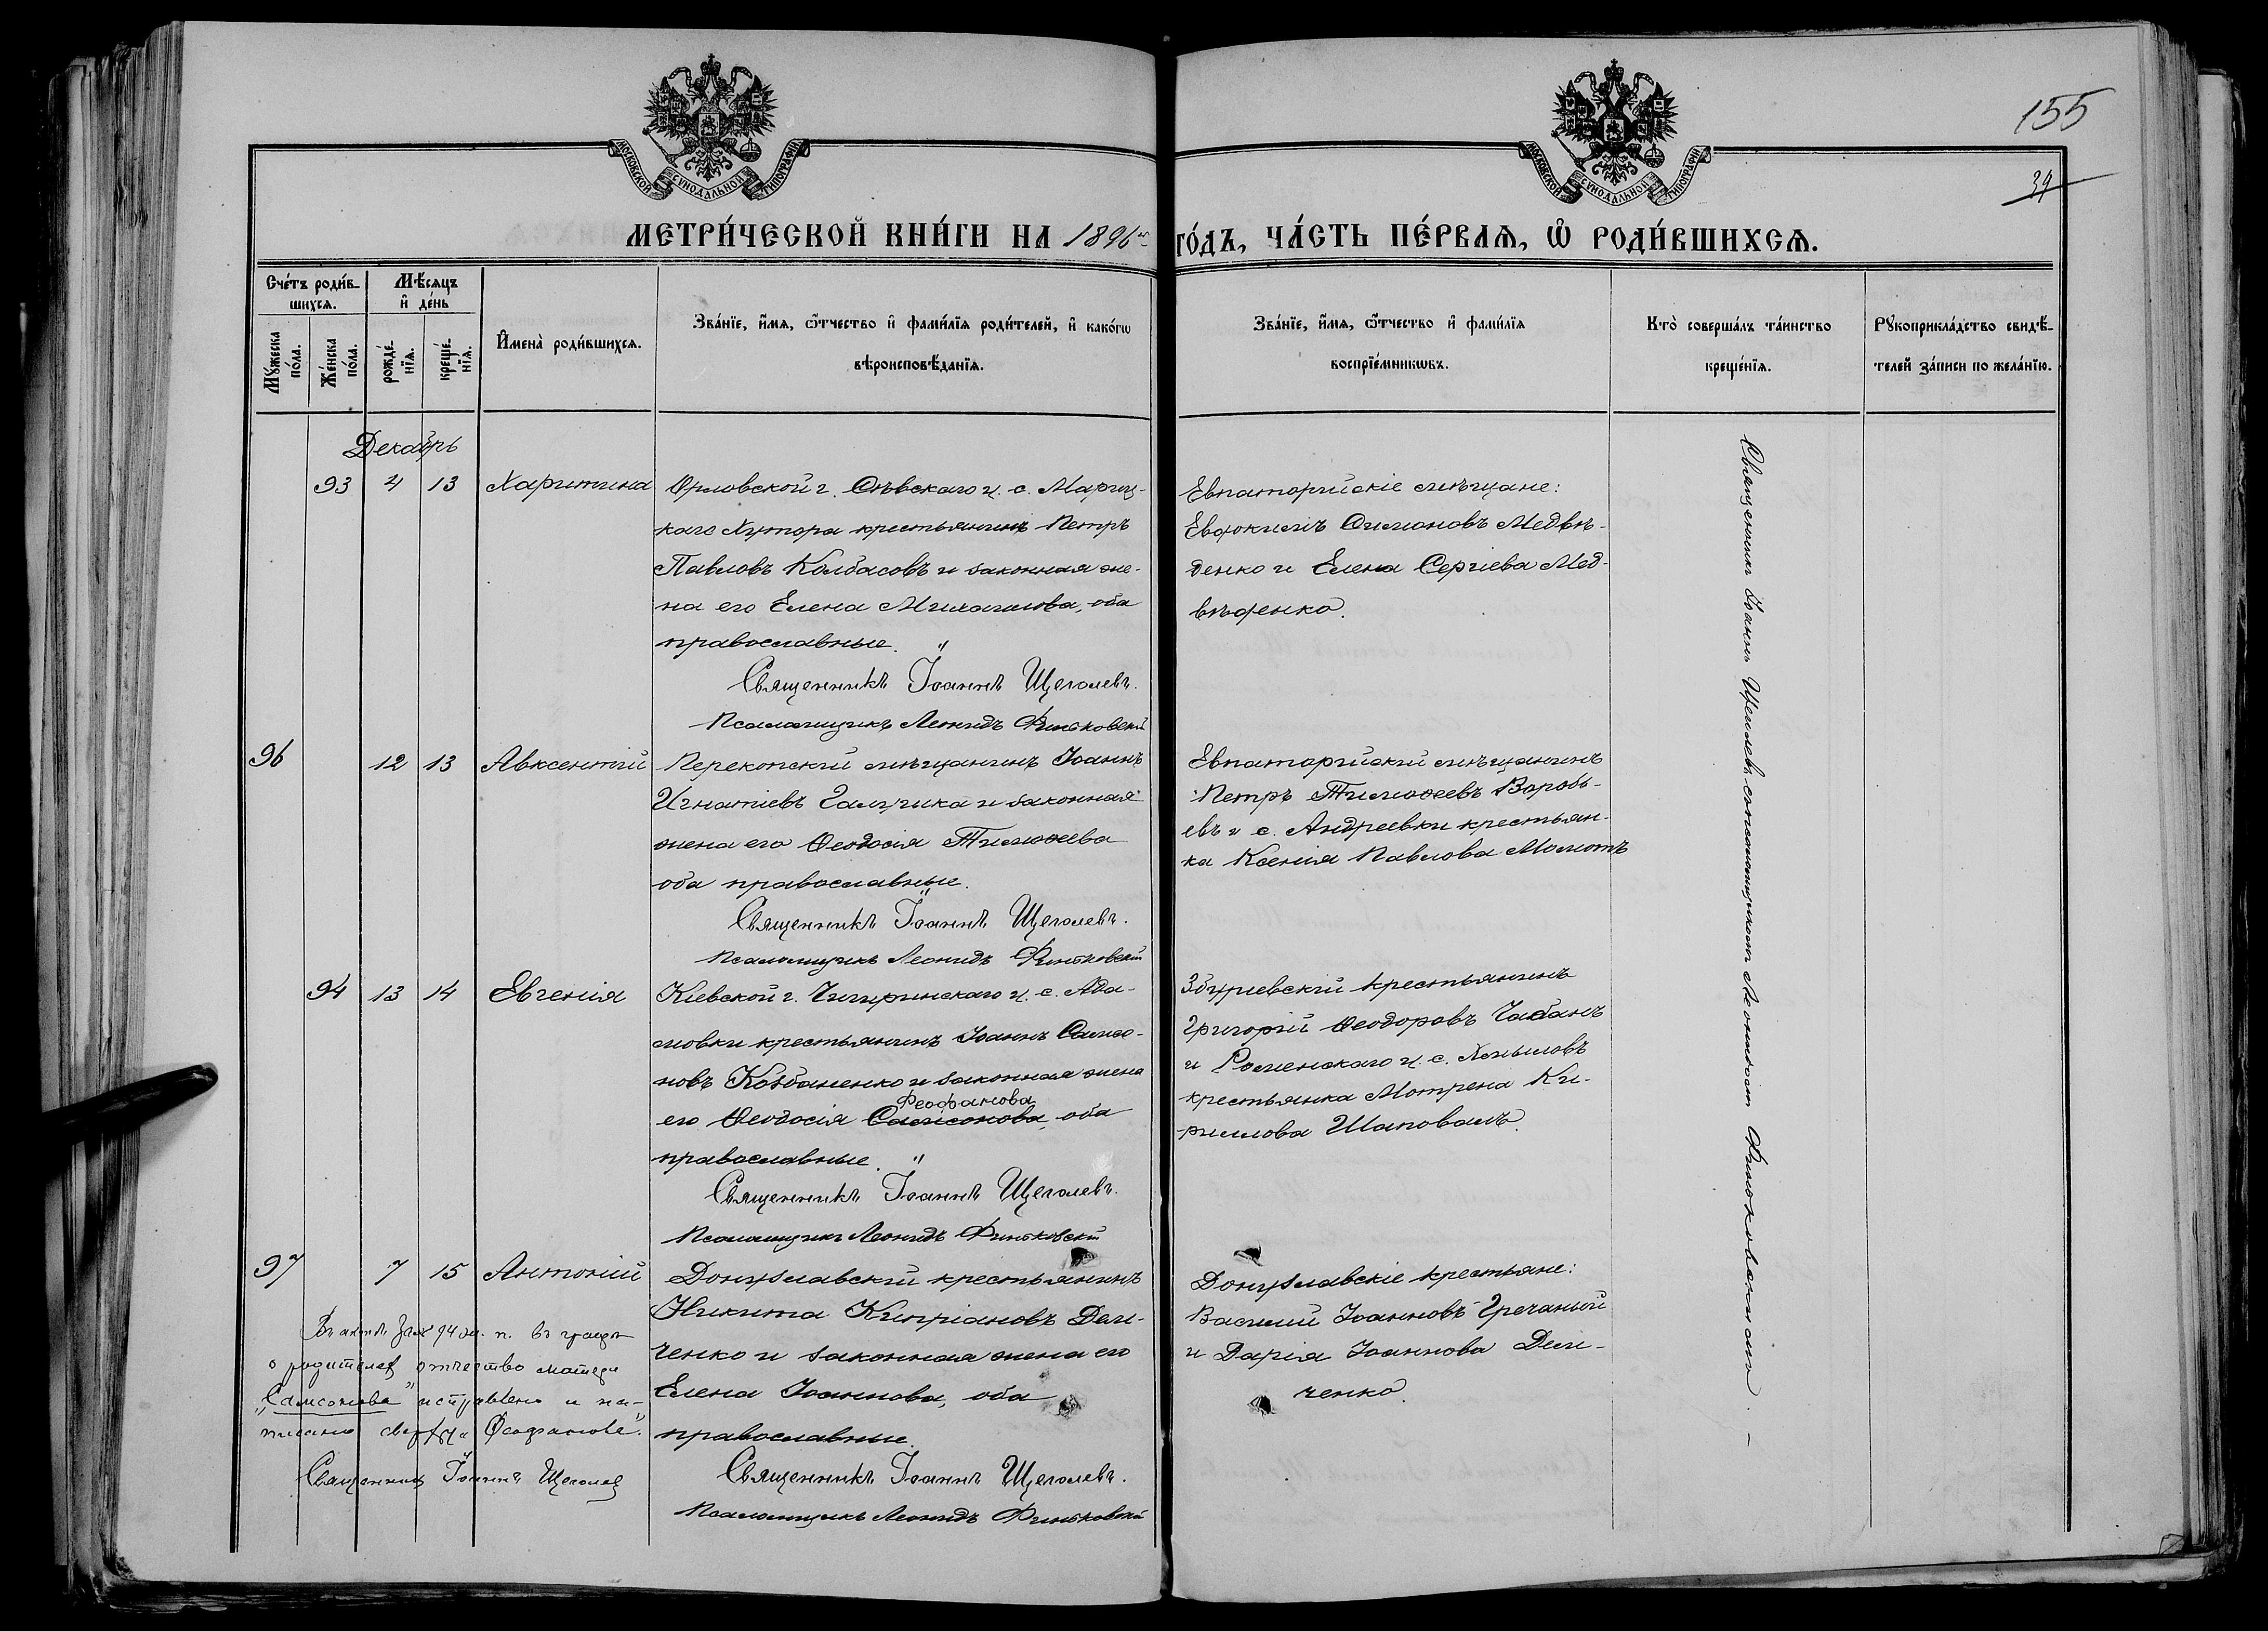 155
34
МОСКОВСКОЙ СУНОДАЛЬНОЙ ТИПОГРАФІИ
МОСКОВСКОЙ СУНОДАЛЬНОЙ ТИПОГРАФІИ
МЕТРИ́ЧЕСКОЙ КНИ́ГИ НА 1896 ГО́ДЪ, ЧА́СТЬ ПЕ́РВАѦ, Ѡ РОДИ́ВШИХСѦ.
Сче́тъ роди́в-
шихсѧ.
Мѣ́сѧцъ
и҆ де́нь
Мꙋ́жеска
по́ла.
Же́нска
по́ла.
рожде́-
нїѧ.
креще́-
нїѧ.
И҆мена̀ роди́вшихсѧ.
Зва́нїе, и҆́мѧ, ѻ҆́тчество и҆ фами́лїѧ роди́телей, и҆ како́гѡ
вѣроисповѣ́данїѧ.
Зва́нїе, и҆́мѧ, ѻ҆́тчество и҆ фами́лїѧ
воспрїе́мникѡвъ.
Кто̀ соверша́лъ та́инство
креще́нїѧ.
Рꙋкоприкла́дство свидѣ́-
телей за́писи по жела́нїю.
Декабрь
93 4 13 Харитина
Орловской г. Сѣвскаго у. с. Мариц-
каго Хутора крестьянинъ Петръ
Павловъ Колбасовъ и законная же-
на его Елена Михаилова, оба
православные.
Священникъ Іоаннъ Щеголевъ.
Псаломщикъ Леонидъ Финьковскій
Евпаторійскіе мѣщане:
Евфокимъ Симоновъ Медвѣ-
денко и Елена Сергіева Мед-
вѣденко.
96 12 13 Авксентій
Перекопскій мѣщанинъ Іоаннъ
Игнатіевъ Галушка и законная
жена его Ѳеодосія Тимоѳеева
оба православные.
Священникъ Іоаннъ Щеголевъ.
Псаломщикъ Леонидъ Финьковскій
Евпаторійскій мѣщанинъ
Петръ Тимоѳеевъ Воробь-
евъ и с. Андреевки крестьян-
ка Ксенія Павлова Молотъ
94 13 14 Евгенія
Кіевской г. Чигиринскаго у. с. Ада-
мовки крестьянинъ Іоаннъ Самсо-
новъ Козбаненко и законная жена
Феофанова
его Ѳеодосія Самсонова, оба
православные.
Священникъ Іоаннъ Щеголевъ.
Псаломщикъ Леонидъ Финьковскій
Збурьевскій крестьянинъ
Григорій Ѳеодоровъ Чабанъ
и Роменскаго у. с.
крестьянка Мотрена Ки-
риллова Шаповалъ.
97 7 15 Антоній
Донузлавскій крестьянинъ
Никита Кипріановъ Дем-
ченко и законная жена его
Елена Іоаннова, оба
православные.
Священникъ Іоаннъ Щеголевъ.
Псаломщикъ Леонидъ Финьковскій
Донузлавскіе крестьяне:
Василий Іоанновъ Гречаный
и Дарія Іоаннова Дем-
ченко.
Въ актѣ за № 94 ж. п. въ графѣ
о родителях отчество матери
„Самсонова" исправлено и на-
писано сверху „Феофанова".
Священникъ Іоаннъ Щеголевъ
Священникъ Іоаннъ Щеголевъ съ псаломщикомъ Леонидомъ Финьковскимъ. –